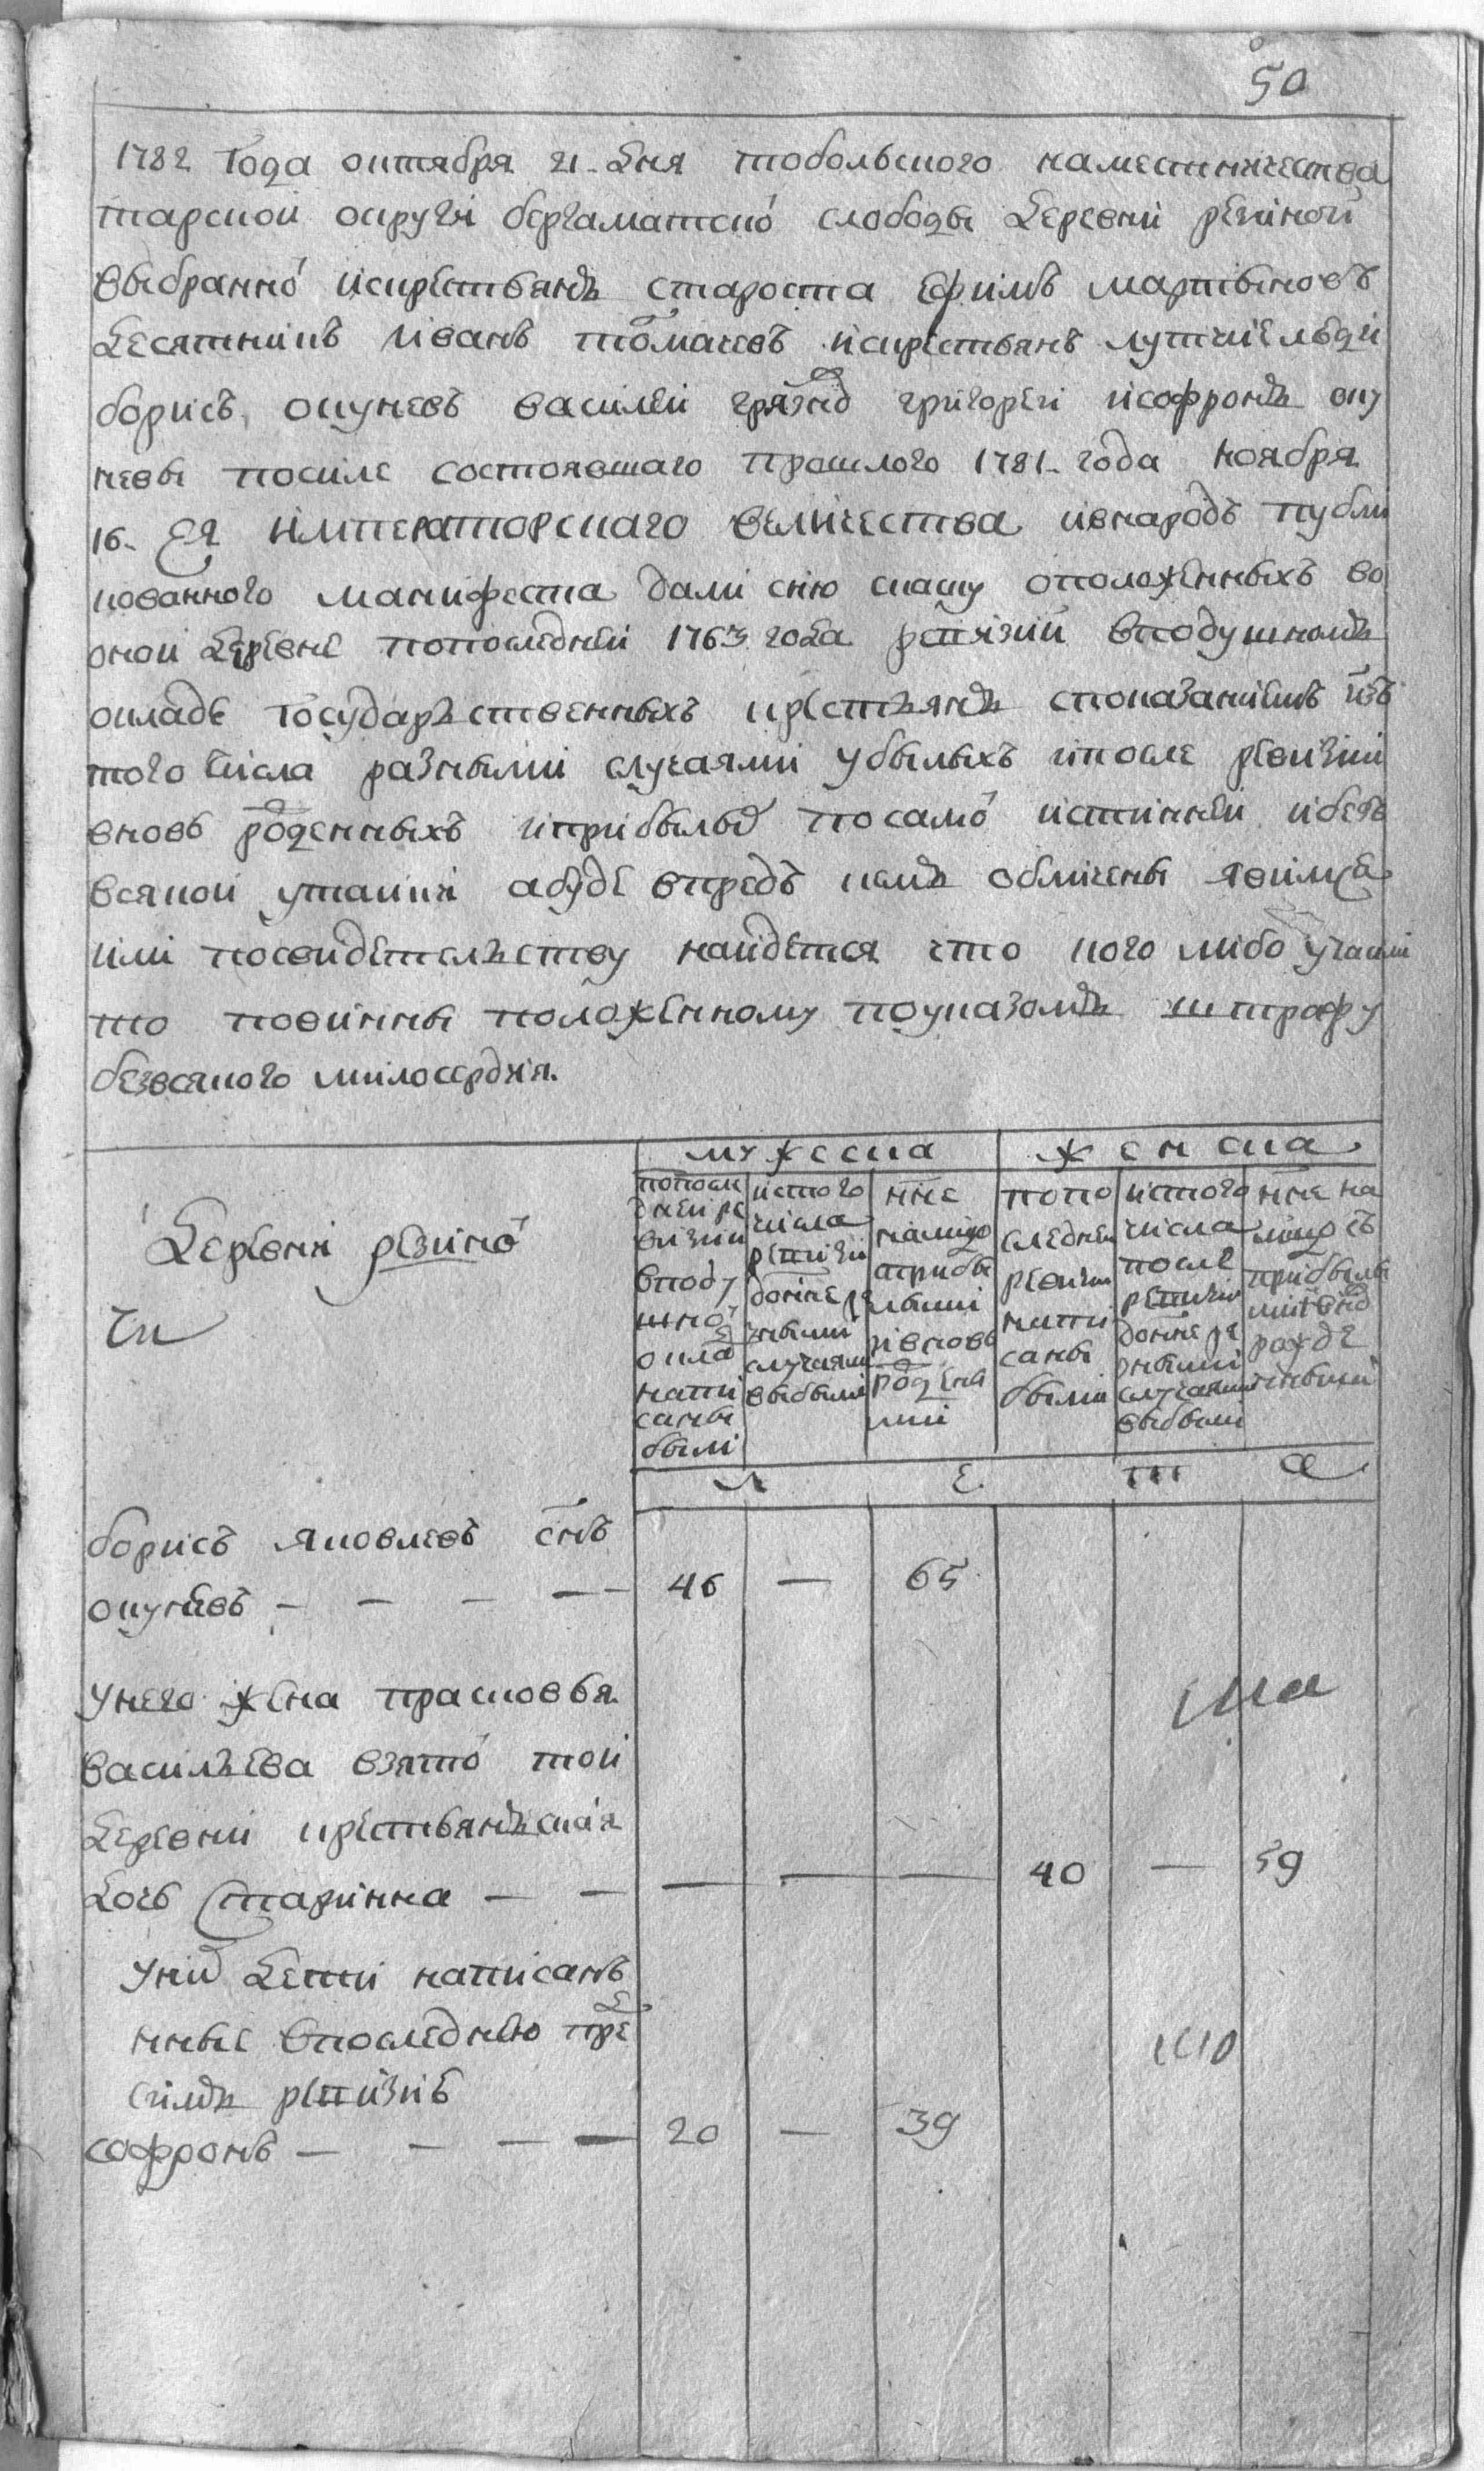 50
1782 Года октября 21. дня тобольского наместничества
тарской округи бергаматско слободы деревни резиной
выбранно искрестьянъ староста ефимъ мартыновъ
десятникъ иванъ томачевъ искрестьянъ лутчиельди
борисъ окуневъ василей григорей исофронъ оку
невы посиле состоявшаго прошлого 1781. года ноября
16. Ея Императорскаго величества ивнародъ публи
кованного манифеста дали сию скаску оположенныхъ во
оной деревне попоследней 1763 года ревизии вподушномъ
окладе Государственныхъ крестьянъ споказаниемъ изъ
того числа разными случаями убылыхъ ипосле ревизии
вновь роденныхъ иприбылых посамо истинней ибезъ
всякой утайки абуде впредь кемъ обличены явимся
или посвидетельству найдется что кого либо утаили
то повинны положенному поуказомъ штрафу
безвсякого милосердия.
мужеска женска
попосле
дней ре
визии
вподу
шно
окла
напи
саны
были
истого
числа
ревизии
донне ра
зными
случаями
выбыли
нне
налицо
сприбы
лыми
ивновь
рожденны
ми
попо
следней
ревизии
напи
саны
были
истого
числа
после
ревизии
донне ра
зными
случаями
выбыли
нне на
лицо съ
прибылы
ми
рожде
нными
Деревни резино
л е т а
борисъ яковлевъ снъ
окуневъ — — — — 46 — 65
унего жена прасковья
васильева взято той
деревни крестьянская
дочь старинна — — — — — 40 — 59
уних дети написанъ
нные впоследнюю пре
симъ ревизию
софронъ — — — — 20 — 39